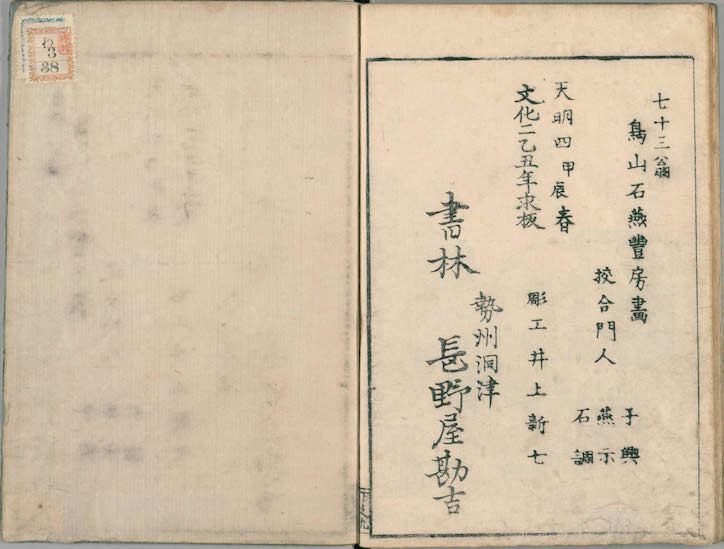 七十三翁
鳥山石燕豊房畫
挍合門人
子興
燕示
石調
天明四甲辰春
文化二乙丑年求板
彫工井上新七
勢州洞津
書林 長野屋勘吉
下之九
わ
3
38